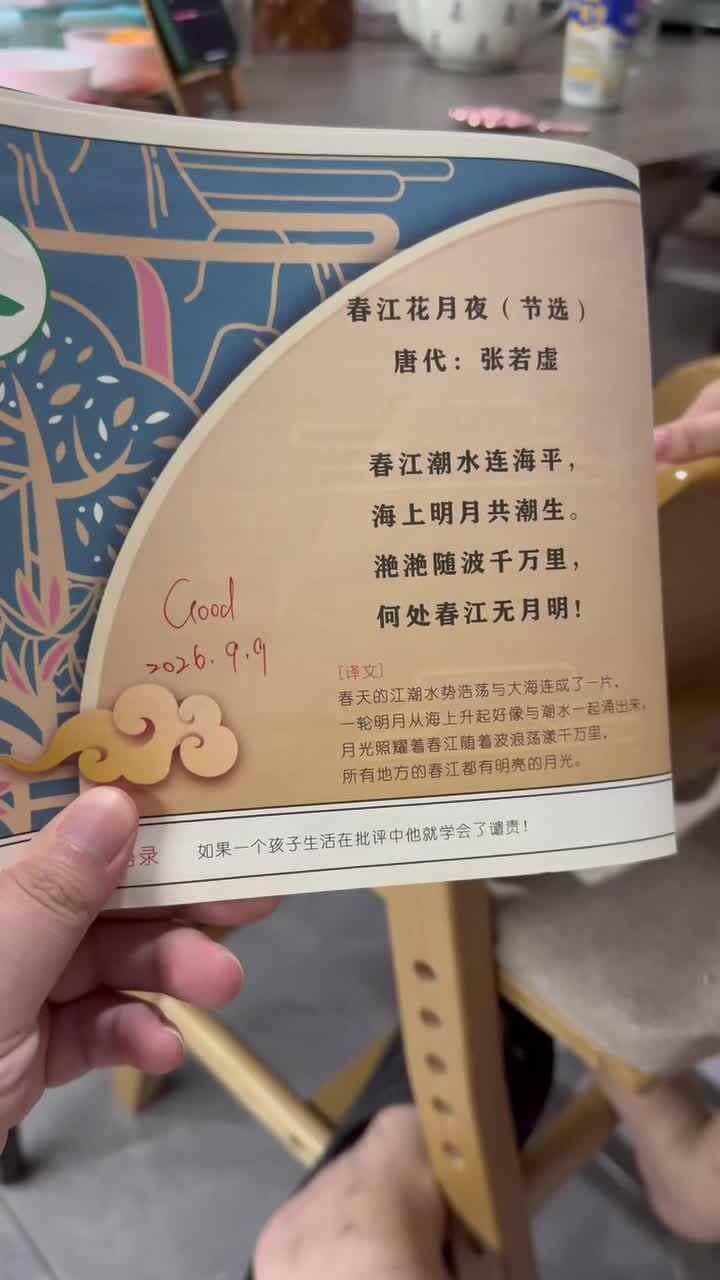 春江花月夜（节选）
唐代：张若虚
春江潮水连海平，
海上明月共潮生。
滟滟随波千万里，
何处春江无月明！
Good
2026.9.9
[译文]
春天的江潮水势浩荡与大海连成了一片，
一轮明月从海上升起好像与潮水一起涌出来，
月光照耀着春江随着波浪荡漾千万里，
所有地方的春江都有明亮的月光。
录 如果一个孩子生活在批评中他就学会了谴责！